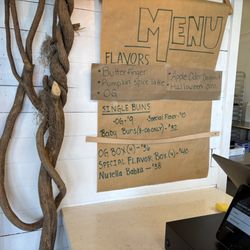 MENU
FLAVORS
• Butterfinger
• Pumpkin Spice Latte
• OG
• Apple Cider
• Halloween
SINGLE BUNS
OG - $9 Special Flavor - $10
Baby Buns
OG BOX (4) - $36
SPECIAL FLAVOR BOX (4) - $40
Nutella Babka - $38